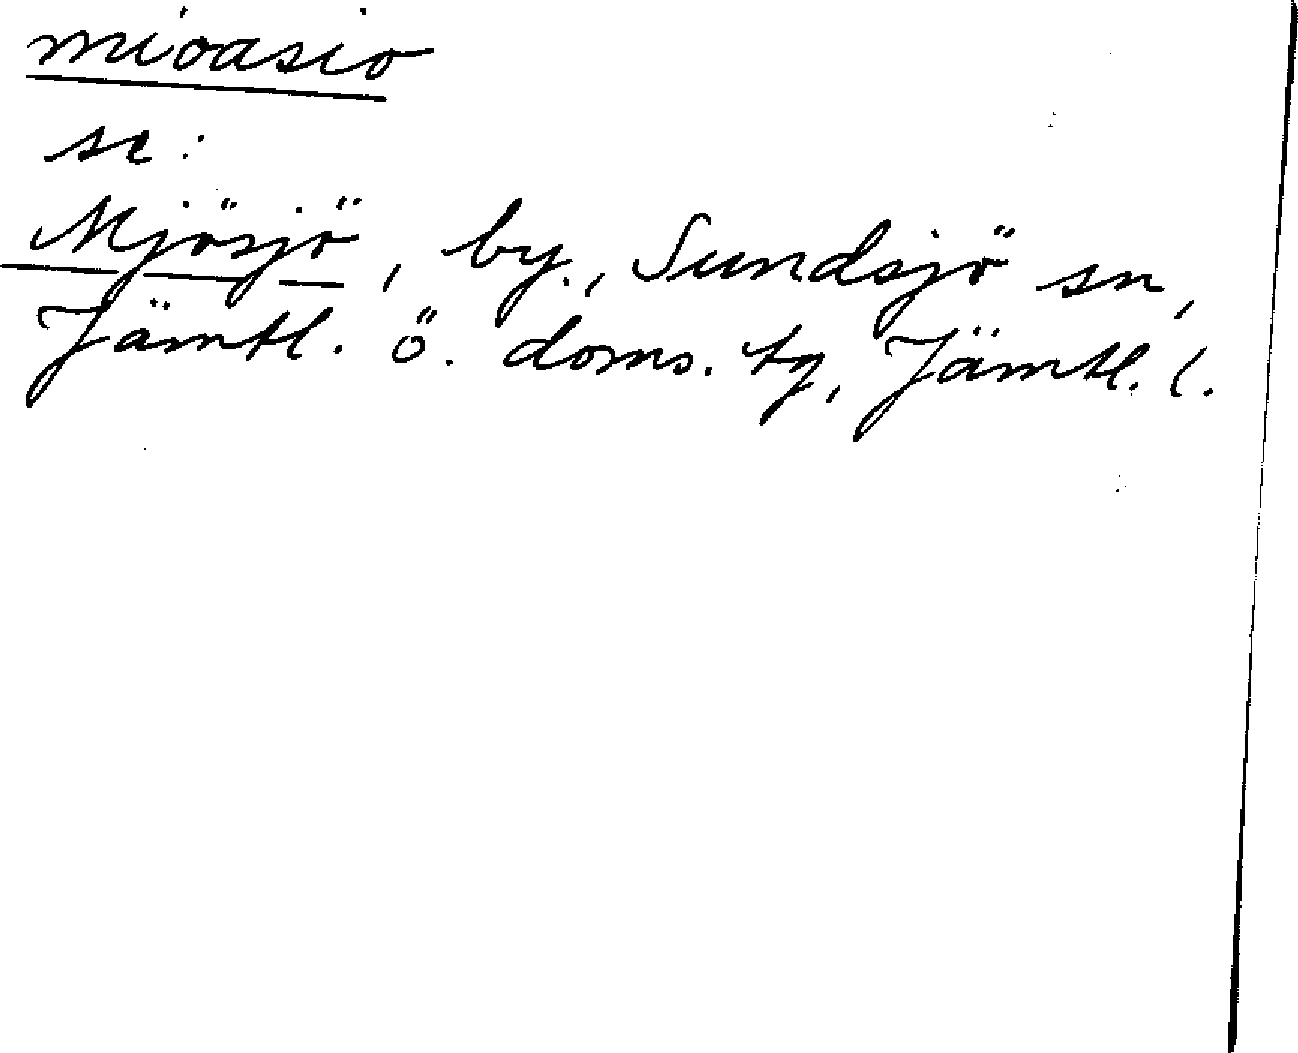 mioasio
se:
Mjösjö, by., Sundsjö sn,
Jämtl. ö. doms. tg, Jämtl. l.